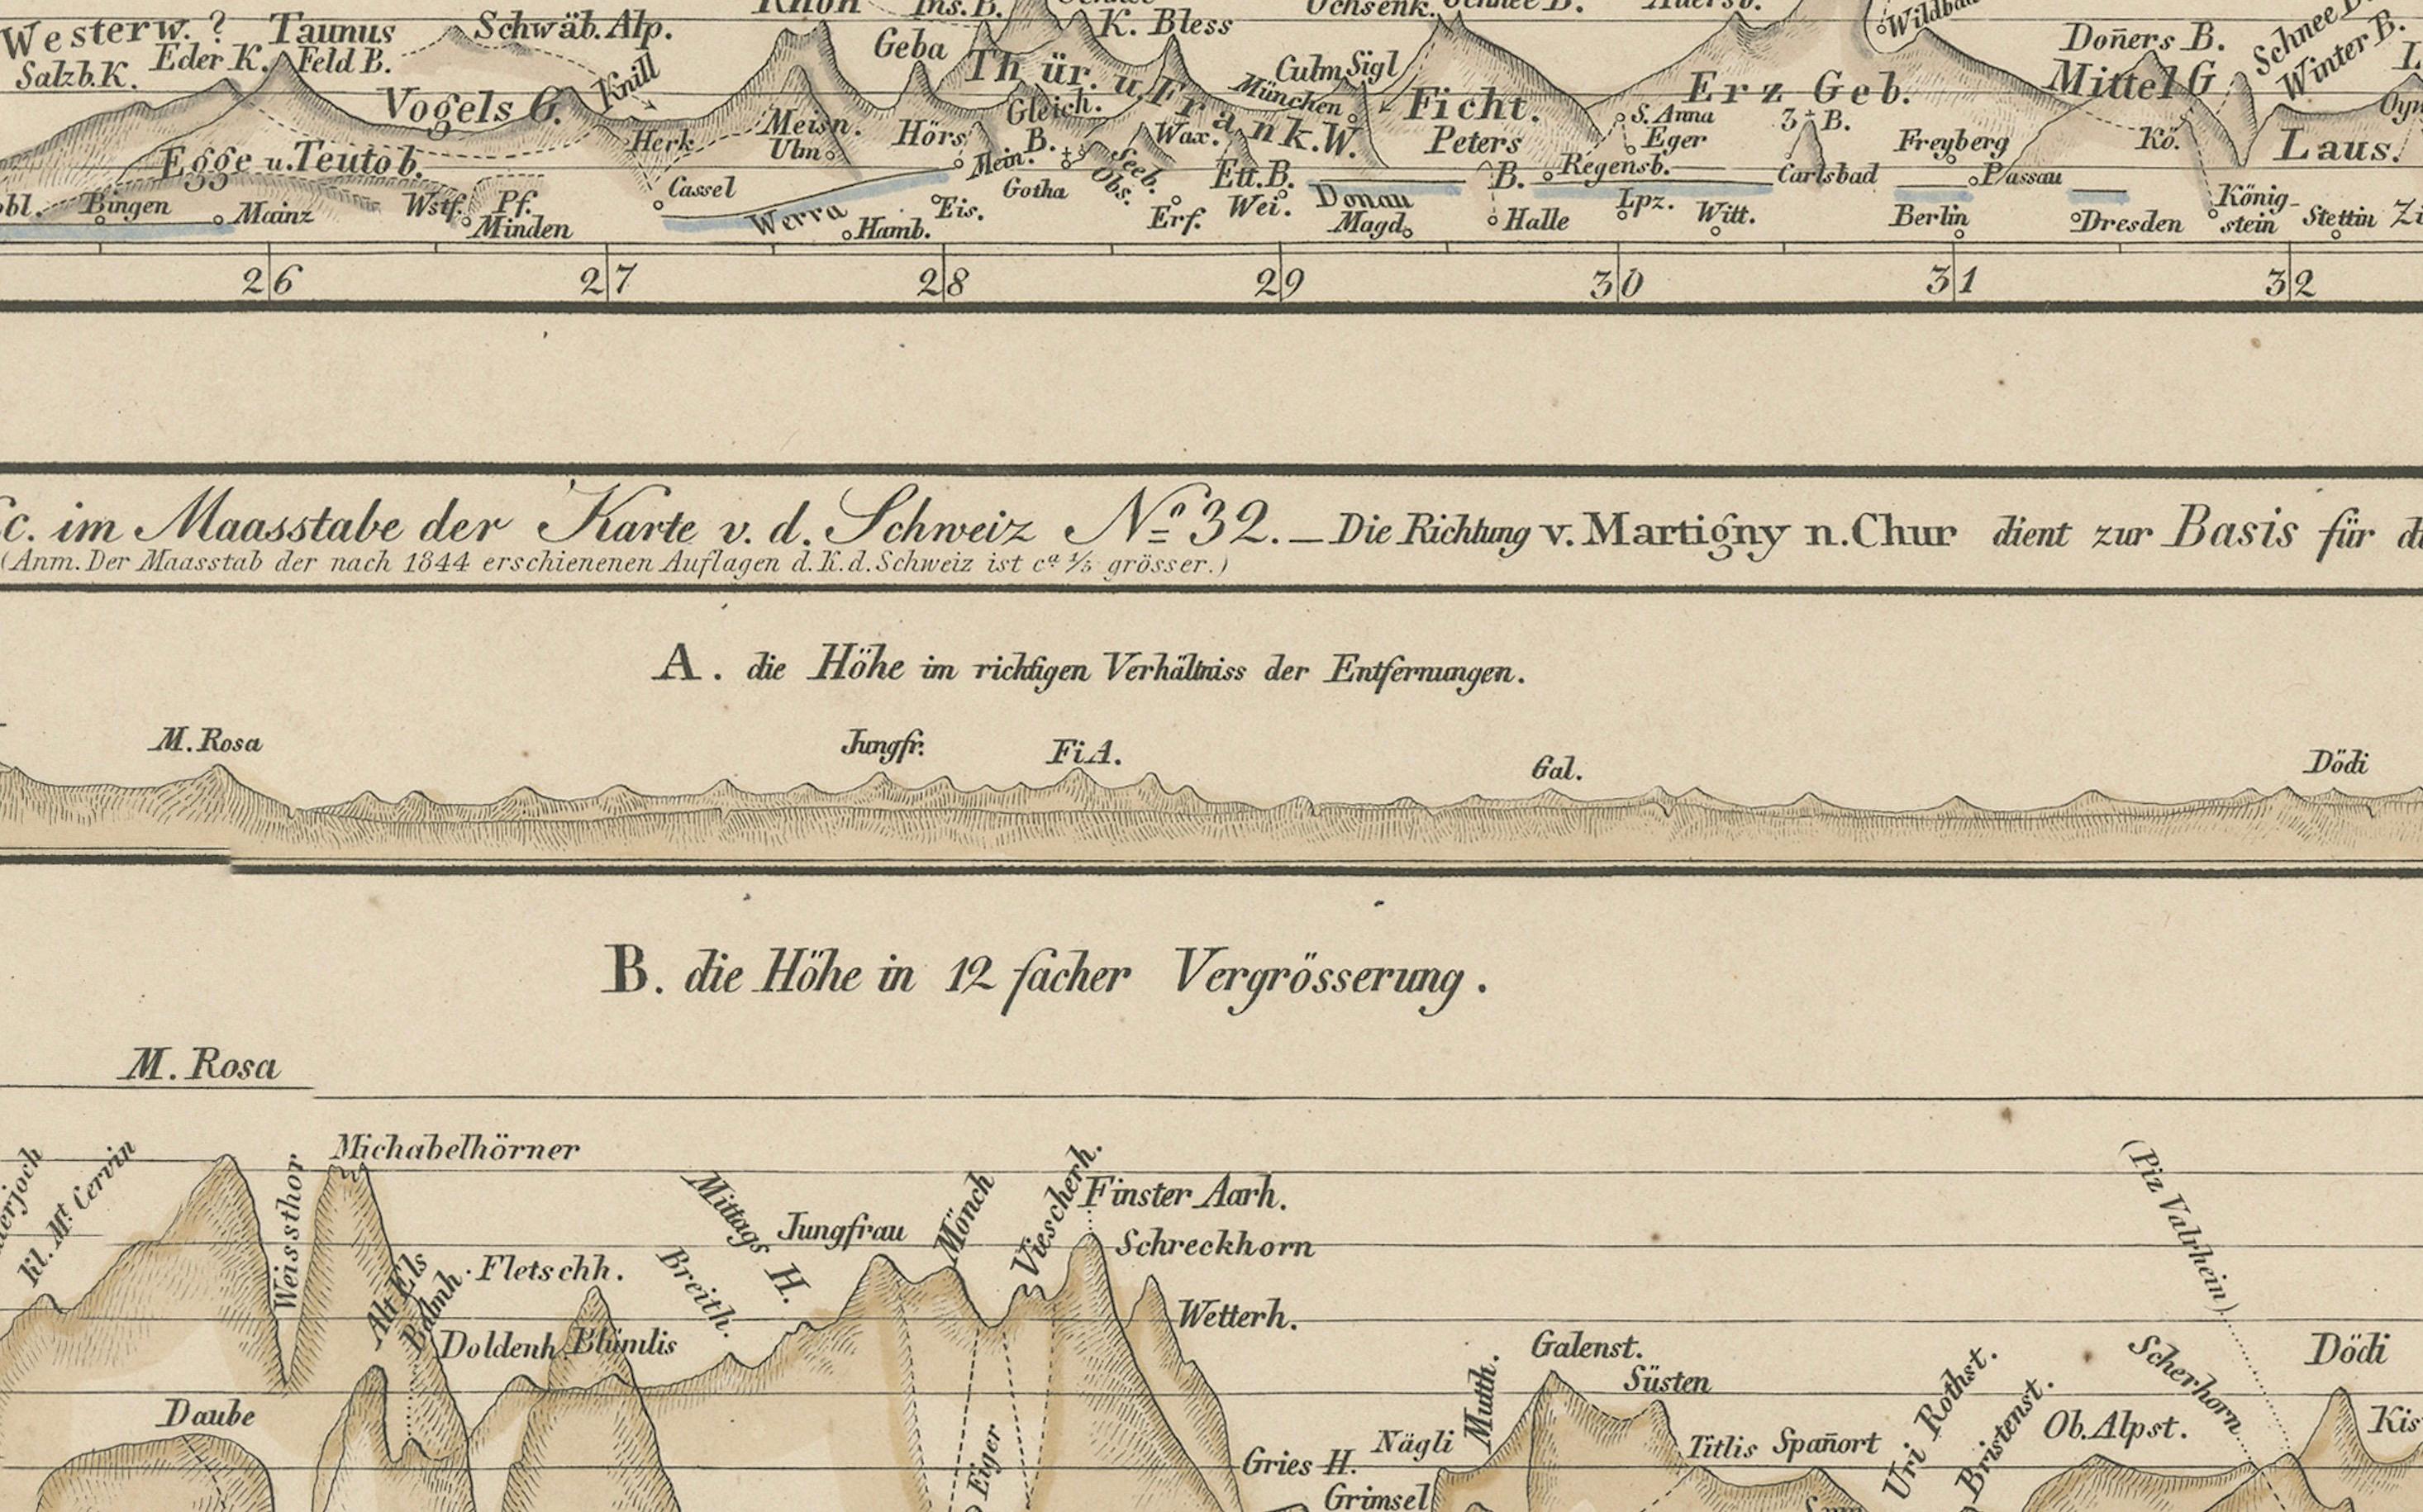 Westerw. ? Taunus Schwäb. Alp. Geba K. Bless Doñers B. Schnee
Salzb. K. Eder K. Feld B. Knill Thür. u. Frank. W. Culm Sigl Erz Geb. Mittel G Winter B.
Vogels G. Meisn. Hörs Gleich. München Ficht. S. Anna 3 B.
Herk Ulm B. Wax. Peters Eger Freyberg Kö. Laus.
Egge u. Teutob. Mein. Seeb. Ett. B. B. Regensb. Carlsbad Passau
Bingen Mainz Wstf. Pf. Cassel Gotha Obs. Donau Lpz. Witt. König-
Minden Werra Hamb. Eis. Erf. Wei. Magd. Halle Berlin Dresden stein Stettin
26 27 28 29 30 31 32
c. im Maasstabe der Karte v. d. Schweiz No. 32. – Die Richtung v. Martigny n. Chur dient zur Basis für
(Anm. Der Maasstab der nach 1844 erschienenen Auflagen d. K. d. Schweiz ist ca ⅕ grösser.)
A. die Höhe im richtigen Verhältniss der Entfernungen.
M. Rosa Jungfr. Fi A. Gal. Dödi
B. die Höhe in 12 facher Vergrösserung.
M. Rosa
Kl. Mt. Cervin
Weissthor
Michabelhörner
Alt Els
Balmh.
Fletschh.
Doldenh. Blümlis
Breith.
Mittags H.
Jungfrau
Mönch
Viescherh.
Finster Aarh.
Schreckhorn
Wetterh.
(Piz Valrhein)
Daube
Eiger
Gries H.
Grimsel
Nägli
Mutth.
Galenst.
Süsten
Titlis Spañort
Uri Rothst.
Bristenst.
Ob. Alpst.
Scherhorn
Dödi
Kis